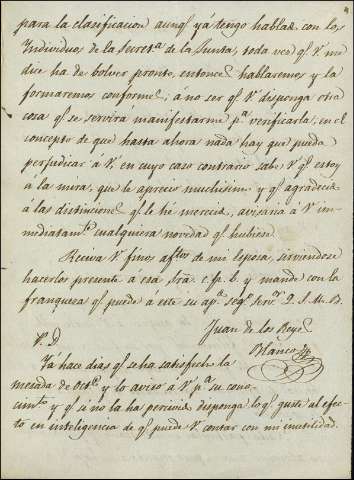 para la clasificacion aunq.e yá tengo hablado con los
Individuos de la Secret.a de la Junta, toda vez q.e V. me
dice ha de bolver pronto, entonces hablaremos y la
formaremos conforme; á no ser q.e V. disponga otra
cosa q.e se servirá manifestarme p.a verificarla, en el
concepto de que hasta ahora nada hay que pueda
perjudicar á V. en cuyo caso contrario sabe V. q.e estoy
á la mira, que le aprecio muchisimo y q.e agradecido
á las distinciones q.e le hé merecido, avisaria á V. im-
mediatam.te cualquiera novedad q.e hubiese.
Reciva V. finos af.tos de mi Esposa, sirviendose
hacerlos presente á esa Sra. c. p. b. y mande con la
franqueza q.e puede á este su ap.do seg.o Serv.r Q. S. M. B.
Juan de los Reyes
Blanco
P. D.
Yá hace dias q.e se ha satisfecho la
mesada de Oct.e y lo aviso á V. p.a su cono-
cim.to y q.e si no la ha percivido disponga lo q.e guste al efec-
to en inteligencia de q.e puede V. contar con mi inutilidad.